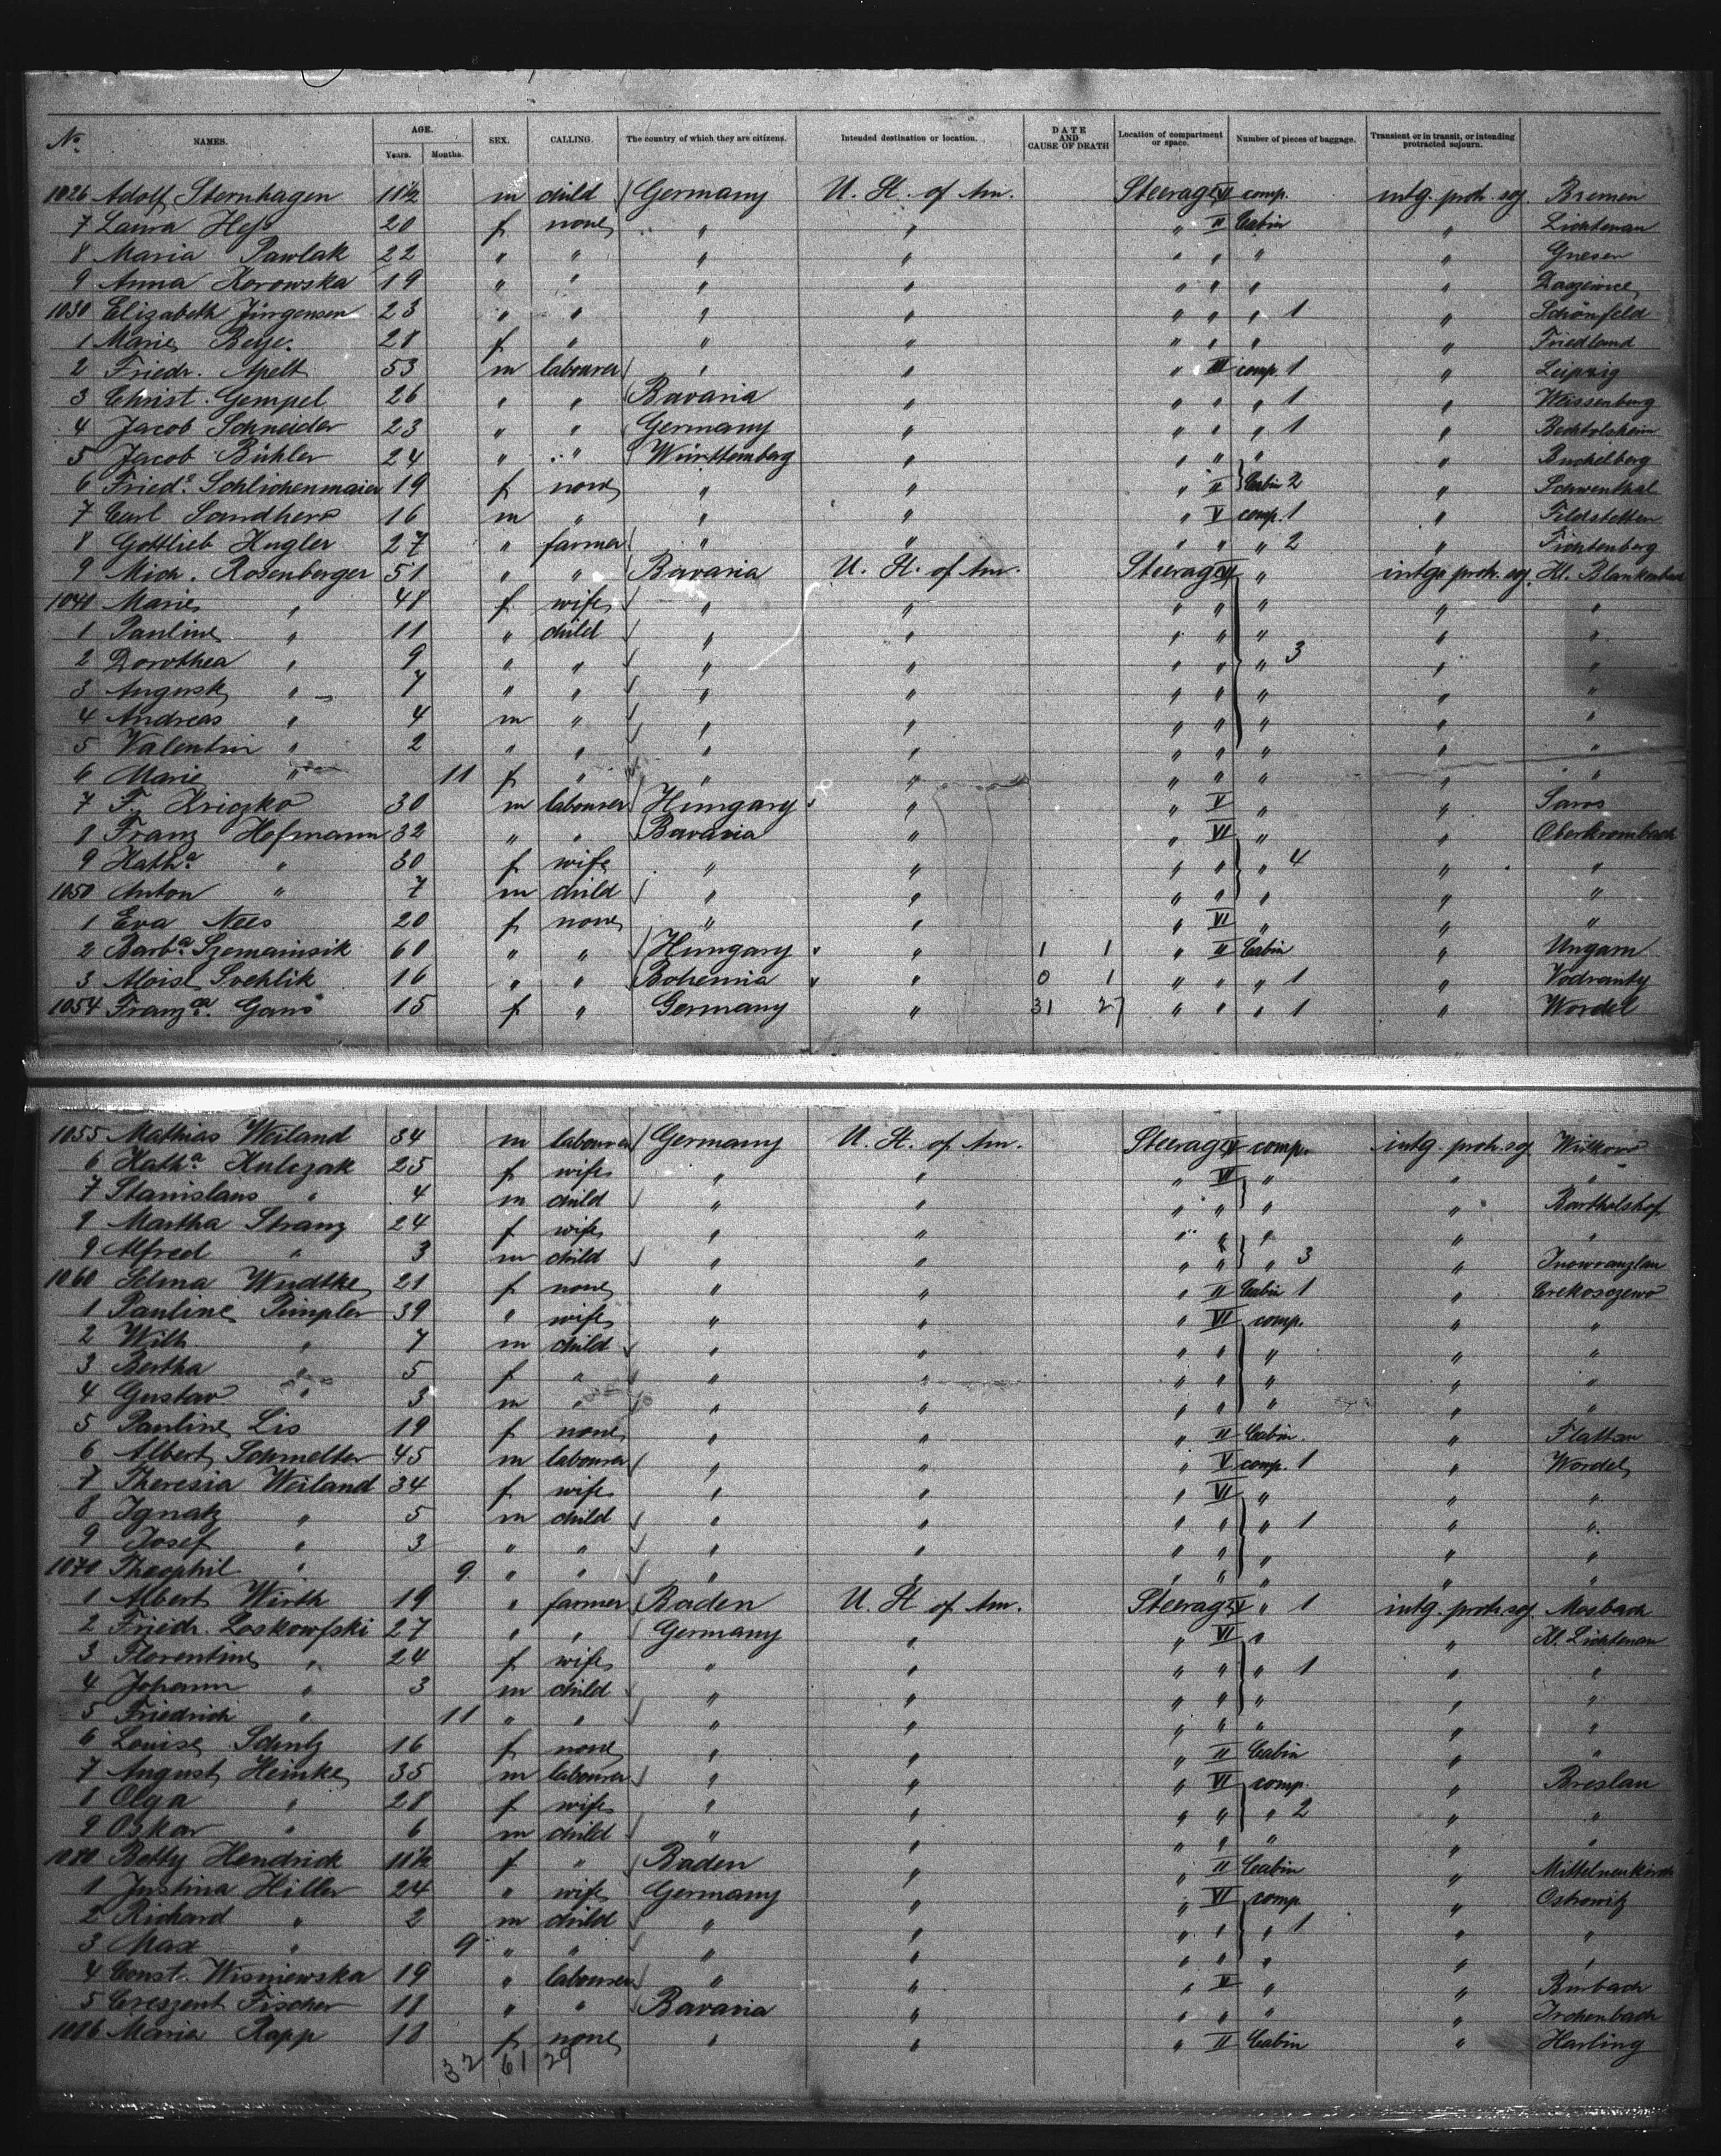 No. NAMES. AGE. Years. Months. SEX. CALLING. The country of which they are citizens. Intended destination or location. DATE AND CAUSE OF DEATH Location of compartment or space. Number of pieces of baggage. Transient or in transit, or intending protracted sojourn.
1026 Adolf Sternhagen 11½ m child Germany U. St. of Am. Steerage V comp. intg. protr. soj. Bremen
7 Laura Hess 20 f none " " " II Cabin " Lichtenau
8 Maria Pawlak 22 " " " " " " " " Gnesen
9 Anna Korowska 19 " " " " " " " "
1030 Elizabeth Jürgensen 23 " " " " " " " 1 " Schönfeld
1 Marie Beyer 28 f " " " " " " " Friedland
2 Friedr. Apelt 53 m labourer " " " III comp. 1 " Leipzig
3 Christ. Gempel 26 " " Bavaria " " " " 1 " Weissenburg
4 Jacob Schneider 23 " " Germany " " " " 1 " Bechtolsheim
5 Jacob Bühler 24 " " Württemberg " " " " " Buchelberg
6 Fried.e Schlichenmaier 19 f none " " " II Cabin 2 " Schwenthal
7 Carl Sandherr 16 m " " " " V comp. 1 " Feldstetten
8 Gottlieb Hugler 27 " farmer " " " " " 2 " Fichtenberg
9 Mich. Rosenberger 51 " " Bavaria U. St. of Am. Steerage VI " intg. protr. soj. Kl. Blankenbach
1040 Marie " 48 f wife " " " " " " "
1 Pauline " 11 " child " " " " " " "
2 Dorothea " 9 " " " " " " " 3 " "
3 August " 7 " " " " " " " " "
4 Andreas " 4 m " " " " " " " "
5 Valentin " 2 " " " " " " " " "
6 Marie " 11 f " " " " " " " "
7 F. Kriczko 30 m labourer Hungary " " V " " Saros
8 Franz Hofmann 32 " " Bavaria " " VI " " Oberkrombach
9 Kath.a " 30 f wife " " " " " 4 " "
1050 Anton " 7 m child " " " " " " "
1 Eva Nees 20 f none " " " VI " " "
2 Barb.a Szemainsik 60 " " Hungary " 1 1 " II Cabin " Ungarn
3 Aloisl Svehlik 16 " " Bohemia " 0 1 " " " 1 "
1054 Franz.ca Gans 15 f " Germany " 31 27 " " " 1 " Wordel
1055 Mathias Weiland 34 m labourer Germany U. St. of Am. Steerage V comp. intg. protr. soj. Witkowo
6 Kath.a Kulczak 25 f wife " " " VI " " "
7 Stanislaus " 4 m child " " " " " " Bartholshof
8 Martha Stranz 24 f wife " " " " " " "
9 Alfred " 3 m child " " " " " 3 " Inowrazlau
1060 Selma Wudtke 21 f none " " " II Cabin 1 "
1 Pauline Pimpler 39 " wife " " " VI comp. " "
2 Wilh. " 7 m child " " " " " " "
3 Bertha " 5 f " " " " " " " "
4 Gustav " 3 m " " " " " " " "
5 Pauline Lis 19 f none " " " II Cabin " Flattau
6 Albert Schmelter 45 m labourer " " " V comp. 1 " Wordel
7 Theresia Weiland 34 f wife " " " VI " " "
8 Ignatz " 5 m child " " " " " 1 " "
9 Josef " 3 " " " " " " " " "
1070 Theophil " 9 " " " " " " " " "
1 Albert Wirth 19 " farmer Baden U. St. of Am. Steerage V " 1 intg. protr. soj. Mosbach
2 Friedr. Loskowsski 27 " " Germany " " VI " " Kl. Lichtenau
3 Florentine " 24 f wife " " " " " 1 " "
4 Johann " 3 m child " " " " " " "
5 Friedrich " 11 " " " " " " " " "
6 Louise Schulz 16 f none " " " II Cabin " "
7 August Heinke 35 m labourer " " " VI comp. " Breslau
8 Olga " 28 f wife " " " " " 2 " "
9 Oskar " 6 m child " " " " " " "
1080 Betty Hendrick 11½ f " Baden " " II Cabin "
1 Justina Hiller 24 " wife Germany " " VI comp. " Ostrowitz
2 Richard " 2 m child " " " " " 1 " "
3 Max " 9 " " " " " " " " "
4 Const. Wisniewska 19 " labourer " " " V " " Burbach
5 Creszent Fischer 18 " " Bavaria " " " " " Irchenbach
1086 Maria Rapp 18 f none " " " II Cabin " Harling
32 61 29